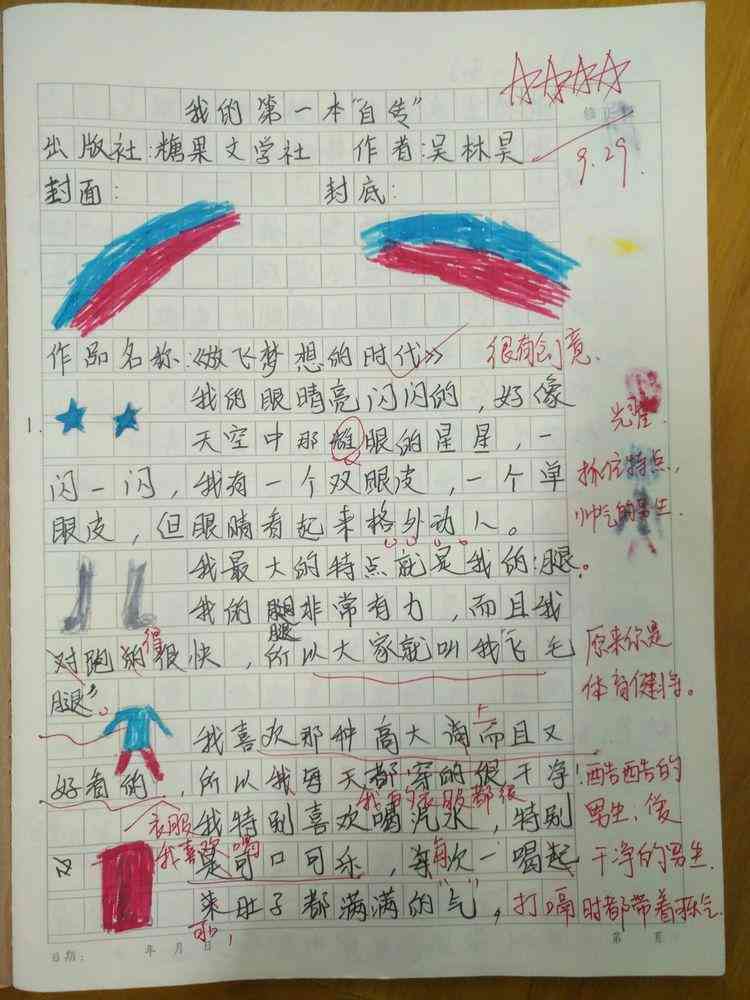 我的第一本"自传"
出版社:糖果文学社 作者:吴林昊
9.29.
封面: 封底:
作品名称:《放飞梦想的时代》 很有创意.
1.
我的眼睛亮闪闪的,好像
天空中那耀眼的星星,一
光
闪一闪,我有一个双眼皮,一个单
抓住特点,
眼皮,但眼睛看起来格外动人。
帅气的男生.
我最大的特点就是我的:腿。
我的腿非常有力,而且我
腿
对跑的很快,所以大家就叫我"飞毛
得
原来你是
腿"。
体育健将。
我喜欢那种高大 而且又
好看的,所以我每天都穿的很干净!
衣服
我的衣服都很
酷酷的
男生,
干净的男生.
我特别喜欢喝汽水,特别
我喜欢喝
是可口可乐,每次一喝起
每
来肚子都满满的"气",打嗝时都带着